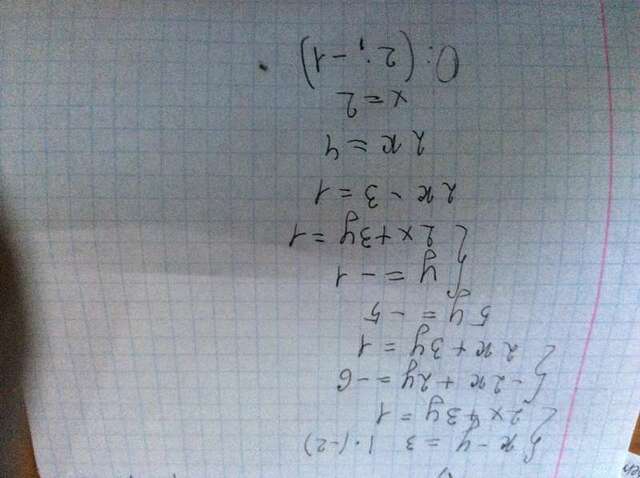 { x - y = 3 | · (-2)
{ 2x + 3y = 1
{ -2x + 2y = -6
{ 2x + 3y = 1
5y = -5
{ y = -1
{ 2x + 3y = 1
2x - 3 = 1
2x = 4
x = 2
O: (2; -1)